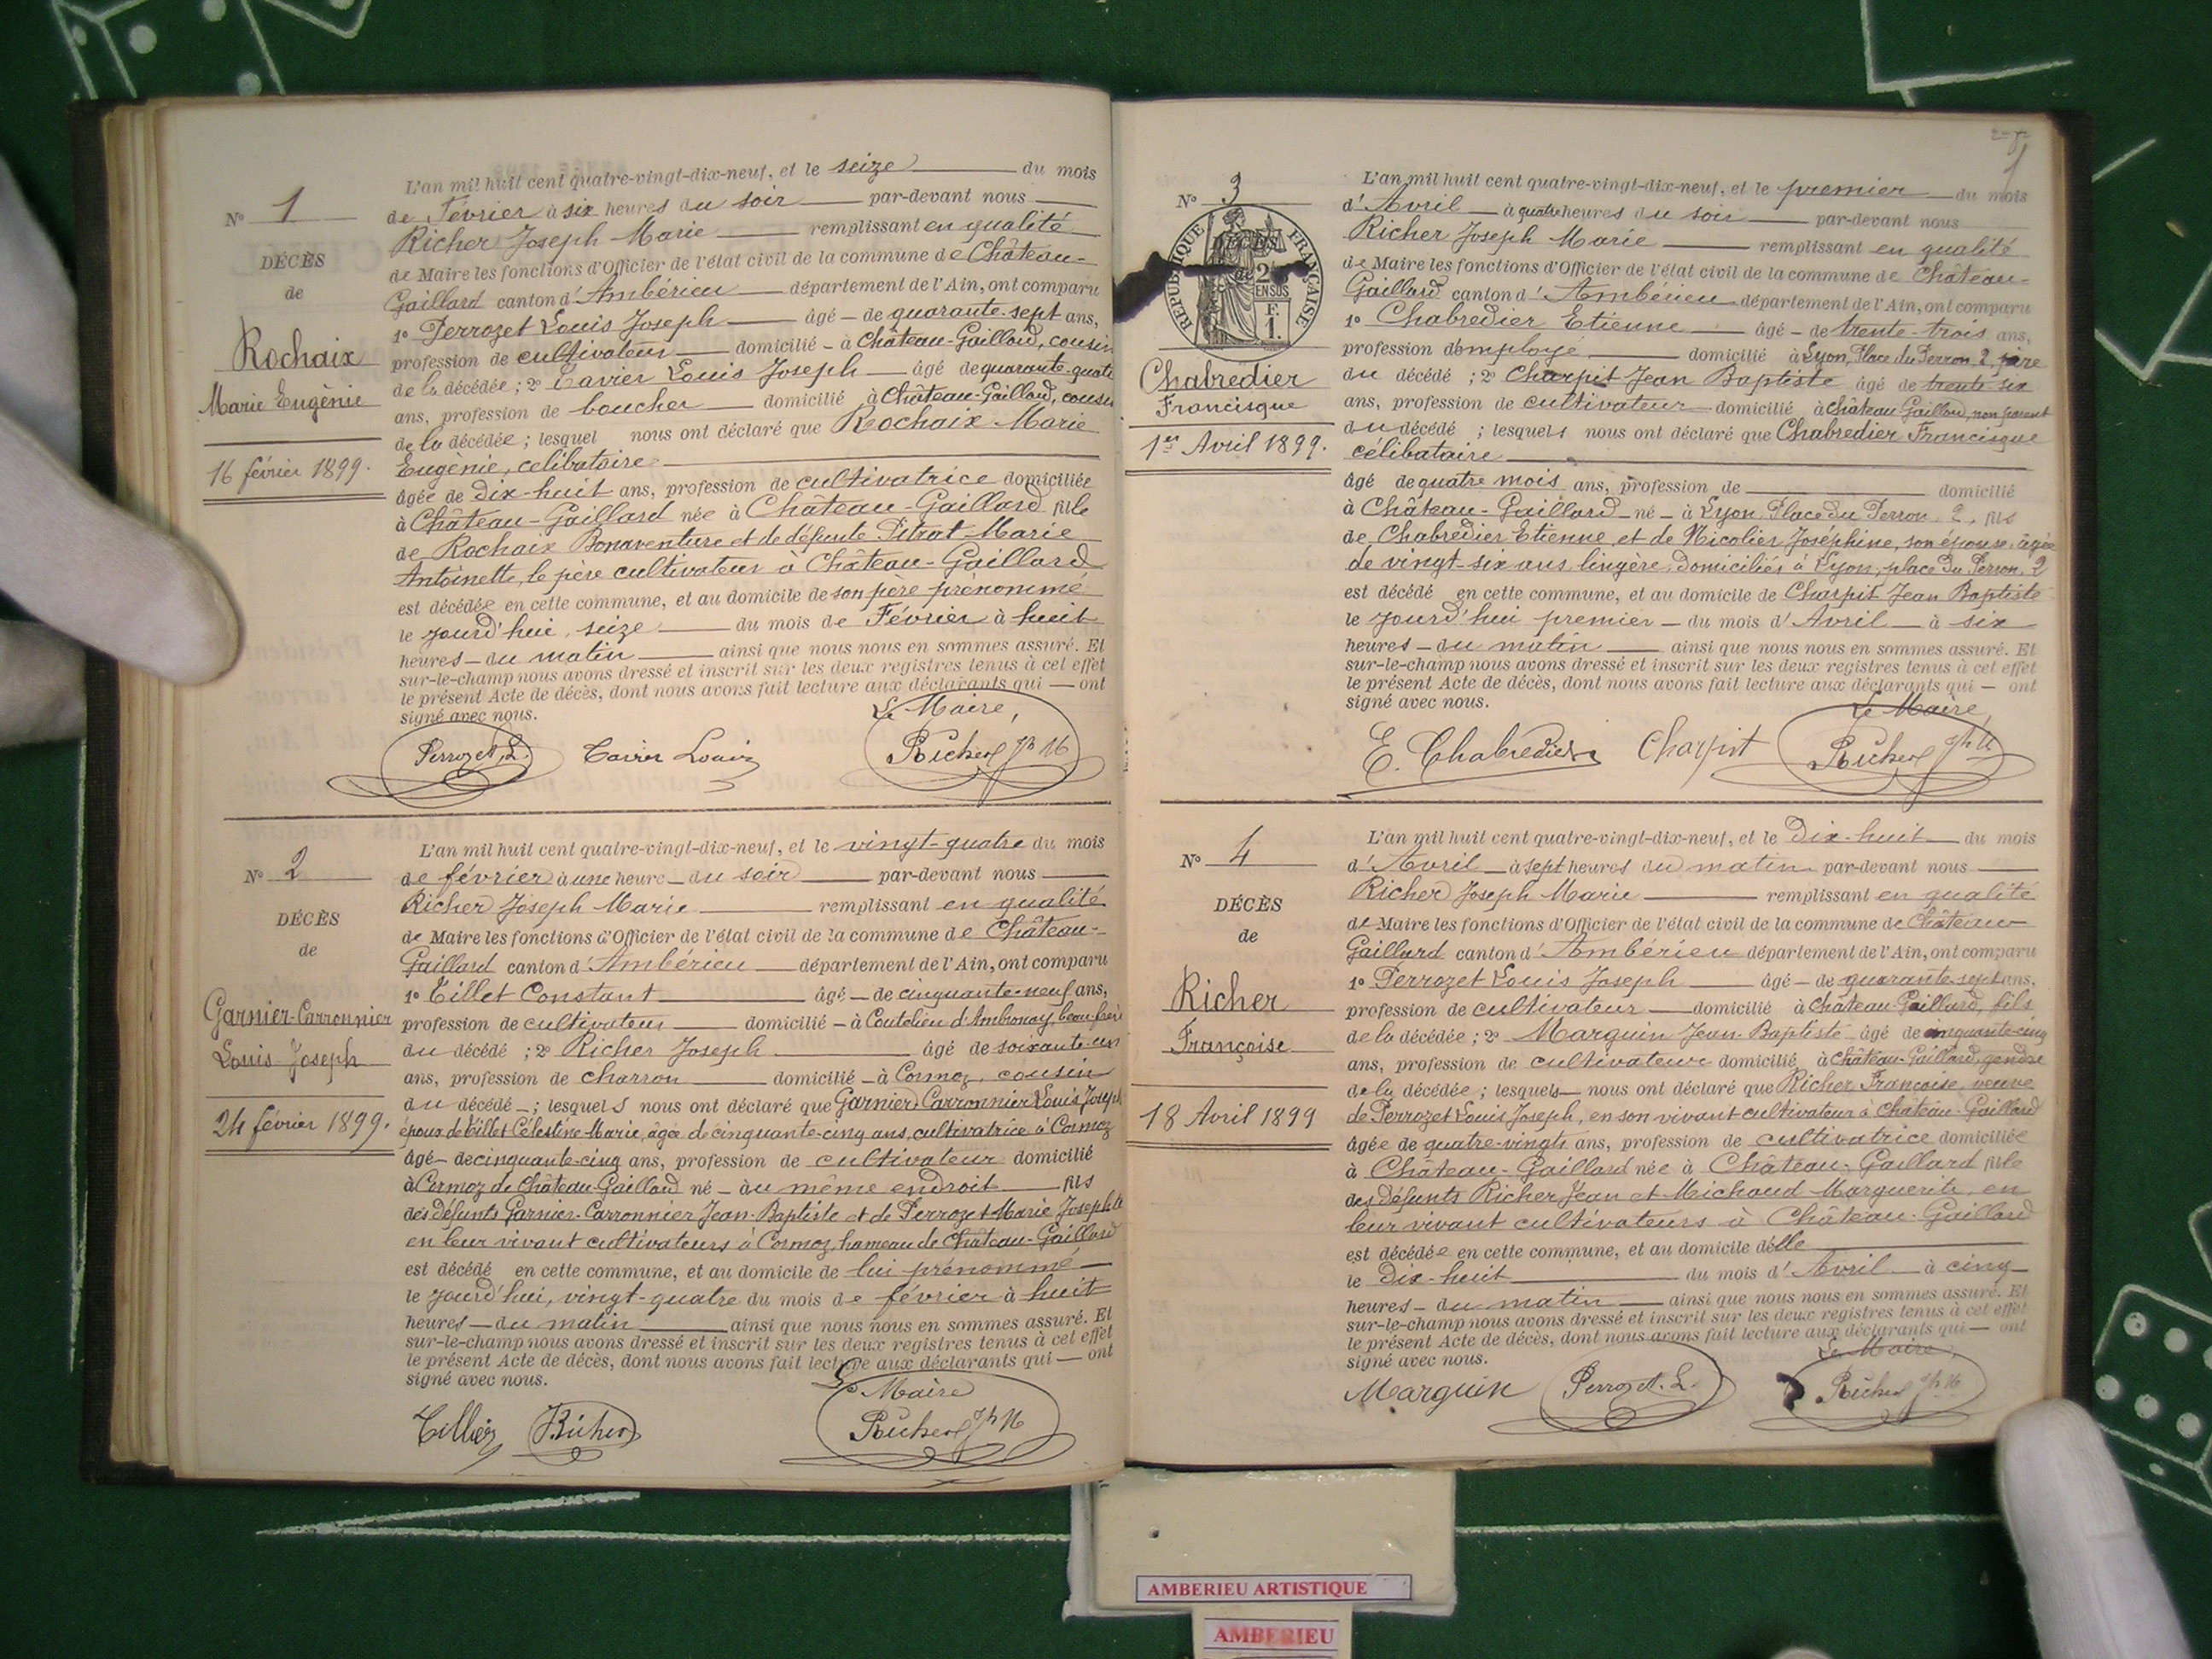 N° 1
DÉCÈS
de
Rochaix
Marie Eugénie
16 février 1899.
L'an mil huit cent quatre-vingt-dix-neuf, et le seize du mois
de Février à six heures du soir par-devant nous
Richer Joseph Marie remplissant en qualité
de Maire les fonctions d'Officier de l'état civil de la commune de Château-
Gaillard canton d'Ambérieu département de l'Ain, ont comparu
1° Perrozet Louis Joseph âgé de quarante-sept ans,
profession de cultivateur domicilié à Château-Gaillard, cousin
de la décédée ; 2° Tavier Louis Joseph âgé de quarante-quatre
ans, profession de boucher domicilié à Château-Gaillard, cousin
de la décédée ; lesquel nous ont déclaré que Rochaix Marie
Eugènie, célibataire
âgée de dix-huit ans, profession de cultivatrice domiciliée
à Château-Gaillard née à Château-Gaillard fille
de Rochaix Bonaventure et de défunte Pitrat Marie
Antoinette, le père cultivateur à Château-Gaillard
est décédée en cette commune, et au domicile de son père prénommé
le jourd'hui, seize du mois de Février à huit
heures du matin ainsi que nous nous en sommes assuré. Et
sur-le-champ nous avons dressé et inscrit sur les deux registres tenus à cet effet
le présent Acte de décès, dont nous avons fait lecture aux déclarants qui ont
signé avec nous. Le Maire,
Perrozet, L. Tavier Louis Richer Jh M
N° 2
DÉCÈS
de
Garnier-Carronnier
Louis Joseph
24 février 1899.
L'an mil huit cent quatre-vingt-dix-neuf, et le vingt-quatre du mois
de février à une heure du soir par-devant nous
Richer Joseph Marie remplissant en qualité
de Maire les fonctions d'Officier de l'état civil de la commune de Château-
Gaillard canton d'Ambérieu département de l'Ain, ont comparu
1° Tillet Constant âgé de cinquante-neuf ans,
profession de cultivateur domicilié à Coutelieu d'Ambronay, beau-frère
du décédé ; 2° Richer Joseph âgé de soixante-un
ans, profession de charron domicilié à Cormoz, cousin
du décédé ; lesquels nous ont déclaré que Garnier-Carronnier Louis Joseph
époux de Tillet Célestine Marie, âgée de cinquante-cinq ans, cultivatrice à Cormoz
âgé de cinquante-cinq ans, profession de cultivateur domicilié
à Cormoz de Château-Gaillard né au même endroit fils
des défunts Garnier-Carronnier Jean-Baptiste et de Perrozet Marie Josephte
en leur vivant cultivateurs à Cormoz, hameau de Château-Gaillard
est décédé en cette commune, et au domicile de lui prénommé
le jourd'hui, vingt-quatre du mois de février à huit
heures du matin ainsi que nous nous en sommes assuré. Et
sur-le-champ nous avons dressé et inscrit sur les deux registres tenus à cet effet
le présent Acte de décès, dont nous avons fait lecture aux déclarants qui ont
signé avec nous. Le Maire
Richer Richer Jh M
N° 3
RÉPUBLIQUE FRANÇAISE
DÉCÈS
de
2
EN SUS
F.
1.
Chabredier
Francisque
1er Avril 1899.
L'an mil huit cent quatre-vingt-dix-neuf, et le premier du mois
d'Avril à quatre heures du soir par-devant nous
Richer Joseph Marie remplissant en qualité
de Maire les fonctions d'Officier de l'état civil de la commune de Château-
Gaillard canton d'Ambérieu département de l'Ain, ont comparu
1° Chabredier Etienne âgé de trente-trois ans,
profession d'employé domicilié à Lyon, Place du Perron 2, père
du décédé ; 2° Charpit Jean Baptiste âgé de trente-six
ans, profession de cultivateur domicilié à Château Gaillard, non parent
du décédé ; lesquels nous ont déclaré que Chabredier Francisque
célibataire
âgé de quatre mois ans, profession de domicilié
à Château-Gaillard né à Lyon Place du Perron 2, fils
de Chabredier Etienne et de Nicolier Joséphine, son épouse, âgée
de vingt-six ans, lingère, domiciliés à Lyon, place du Perron, 2
est décédé en cette commune, et au domicile de Charpit Jean Baptiste
le jourd'hui premier du mois d'Avril à six
heures du matin ainsi que nous nous en sommes assuré. Et
sur-le-champ nous avons dressé et inscrit sur les deux registres tenus à cet effet
le présent Acte de décès, dont nous avons fait lecture aux déclarants qui ont
signé avec nous. Le Maire,
E. Chabredier Charpit Richer Jh M
N° 4
DÉCÈS
de
Richer
Françoise
18 Avril 1899
L'an mil huit cent quatre-vingt-dix-neuf, et le dix-huit du mois
d'Avril à sept heures du matin par-devant nous
Richer Joseph Marie remplissant en qualité
de Maire les fonctions d'Officier de l'état civil de la commune de Château
Gaillard canton d'Ambérieu département de l'Ain, ont comparu
1° Perrozet Louis Joseph âgé de quarante-sept ans,
profession de cultivateur domicilié à Château Gaillard, fils
de la décédée ; 2° Marguin Jean-Baptiste âgé de cinquante-cinq
ans, profession de cultivateur domicilié à Château-Gaillard, gendre
de la décédée ; lesquels nous ont déclaré que Richer Françoise, veuve
de Perrozet Louis Joseph, en son vivant cultivateur à Château-Gaillard
âgée de quatre-vingts ans, profession de cultivatrice domiciliée
à Château-Gaillard née à Château-Gaillard fille
des défunts Richer Jean et Michaud Marguerite, en
leur vivant cultivateurs à Château-Gaillard
est décédée en cette commune, et au domicile d'elle
le dix-huit du mois d'Avril à cinq
heures du matin ainsi que nous nous en sommes assuré. Et
sur-le-champ nous avons dressé et inscrit sur les deux registres tenus à cet effet
le présent Acte de décès, dont nous avons fait lecture aux déclarants qui ont
signé avec nous. Le Maire,
Marguin Perrozet. L. Richer Jh M
AMBERIEU ARTISTIQUE
AMBERIEU